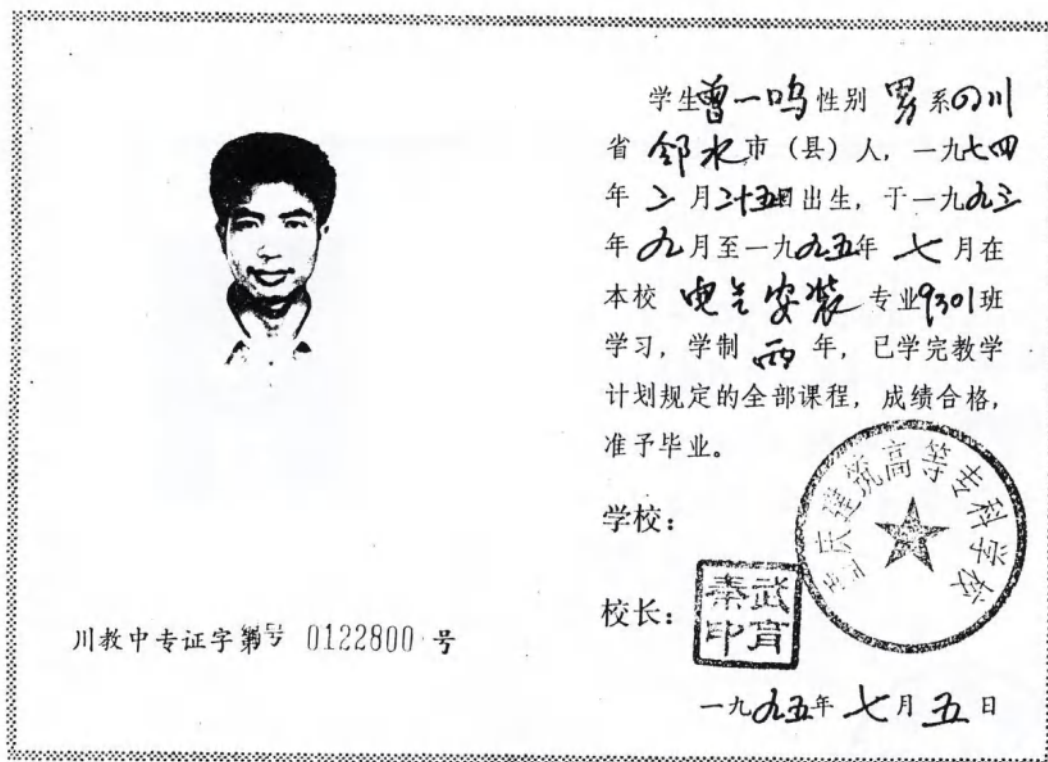 学生曾一鸣性别 男 系四川
省 邻水 市（县）人，一九七四
年 二 月二十五日出生，于一九九三
年 九 月至一九九五年 七 月在
本校 电气安装 专业9301班
学习，学制 两 年，已学完教学
计划规定的全部课程，成绩合格，
准予毕业。
学校：
重庆建筑高等专科学校
校长：
武育
秦印
川教中专证字编号 0122800 号
一九九五年 七 月 五 日